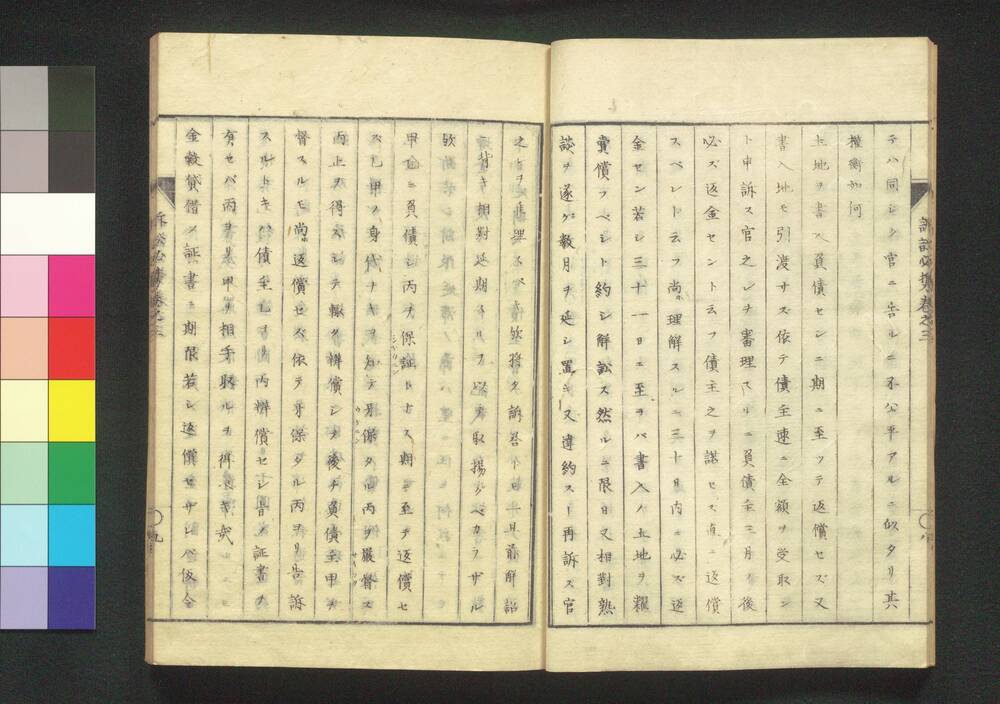 テハ同シク官ニ告ルニ不公平アルニ似タリ其
權衡如何
土地ヲ書入負債セシニ期ニ至ツテ返償セズ又
書入地モ引渡サズ依テ債主速ニ金額ヲ受取ン
ト申訴ス官之レヲ審理スルニ負債主三月ノ後
必ズ返金セント云フ債主之ヲ諾セズ直ニ返償
スベシト云フ尚理解スルニ三十日内ニ必ズ返
金セン若シ三十一日ニ至ラバ書入ノ土地ヲ糶
賣償フベシト約シ解訟ス然ルニ限日又相對熟
談ヲ遂ゲ數月ヲ延シ置キ又違約ス再訴ス官
之レヲ審理スベ
背キ相對延期スル 取揚グベカラザル
歟
甲乙ニ負債シ丙ヲ保証トナス期ニ至テ返償セ
ズ乙甲ノ身代ナキヲ知テ牙保タル丙ヲ嚴督ス
丙止ヲ得スシテ輒ク辨償シテ後チ負債主甲ヲ
督スルモ尚返償セズ依テ牙保タル丙ヨリ告訴
スルトキ債主乙 丙辨償セシ旨ノ証書
有セバ丙 甲ヲ相手取ルヲ得
金穀貸借ノ証書ニ期限若シ返償セザレバ仮令
訴訟必携卷之三
八
訴訟必携卷之三
九